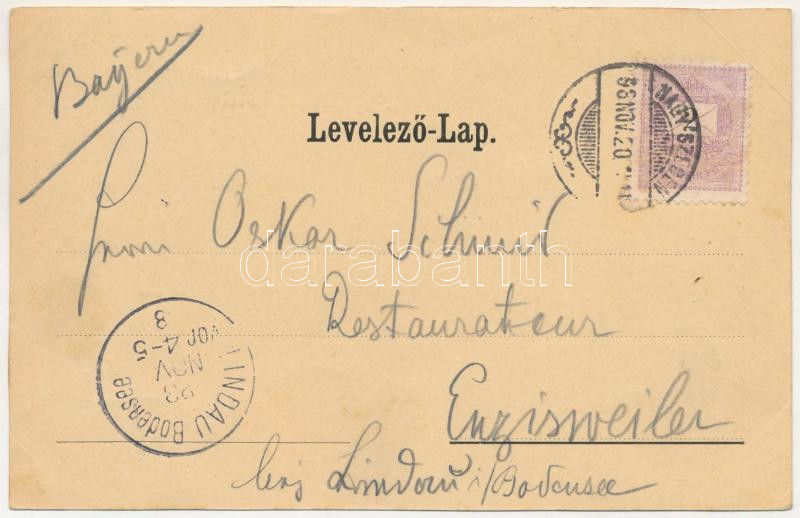 Bayern
Levelező-Lap.
NAGY-SZEBEN
98 NOV. 20
Oskar Schmid
Restaurateur
Enzisweiler
bei Lindau i/Bodensee
LINDAU Bodensee
23
NOV
VOR 4-5
8
darabanth